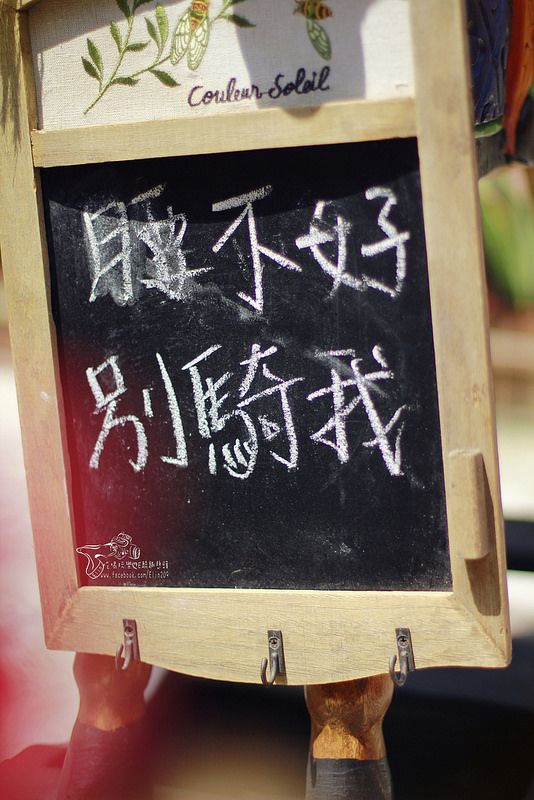 Couleur Soleil
腰不好
別騎我
www.facebook.com/Elin209